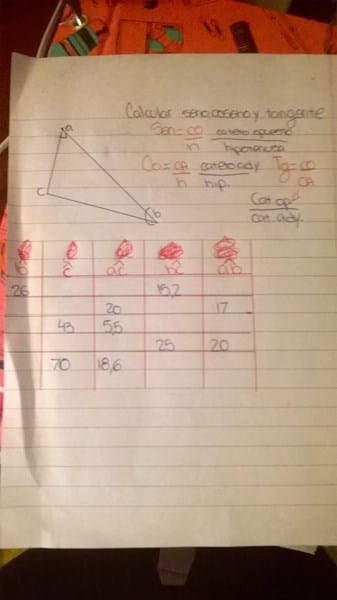 Calcular seno, coseno y tangente
a
Sen = CO cateto opuesto
h hipotenusa
Co = CA cateto ady Tg = CO
h hip. CA
c
b
Cat op
cat. ady.
b ĉ aĉ bĉ âb
26 15,2
20 17
43 5,5
25 20
70 18,6